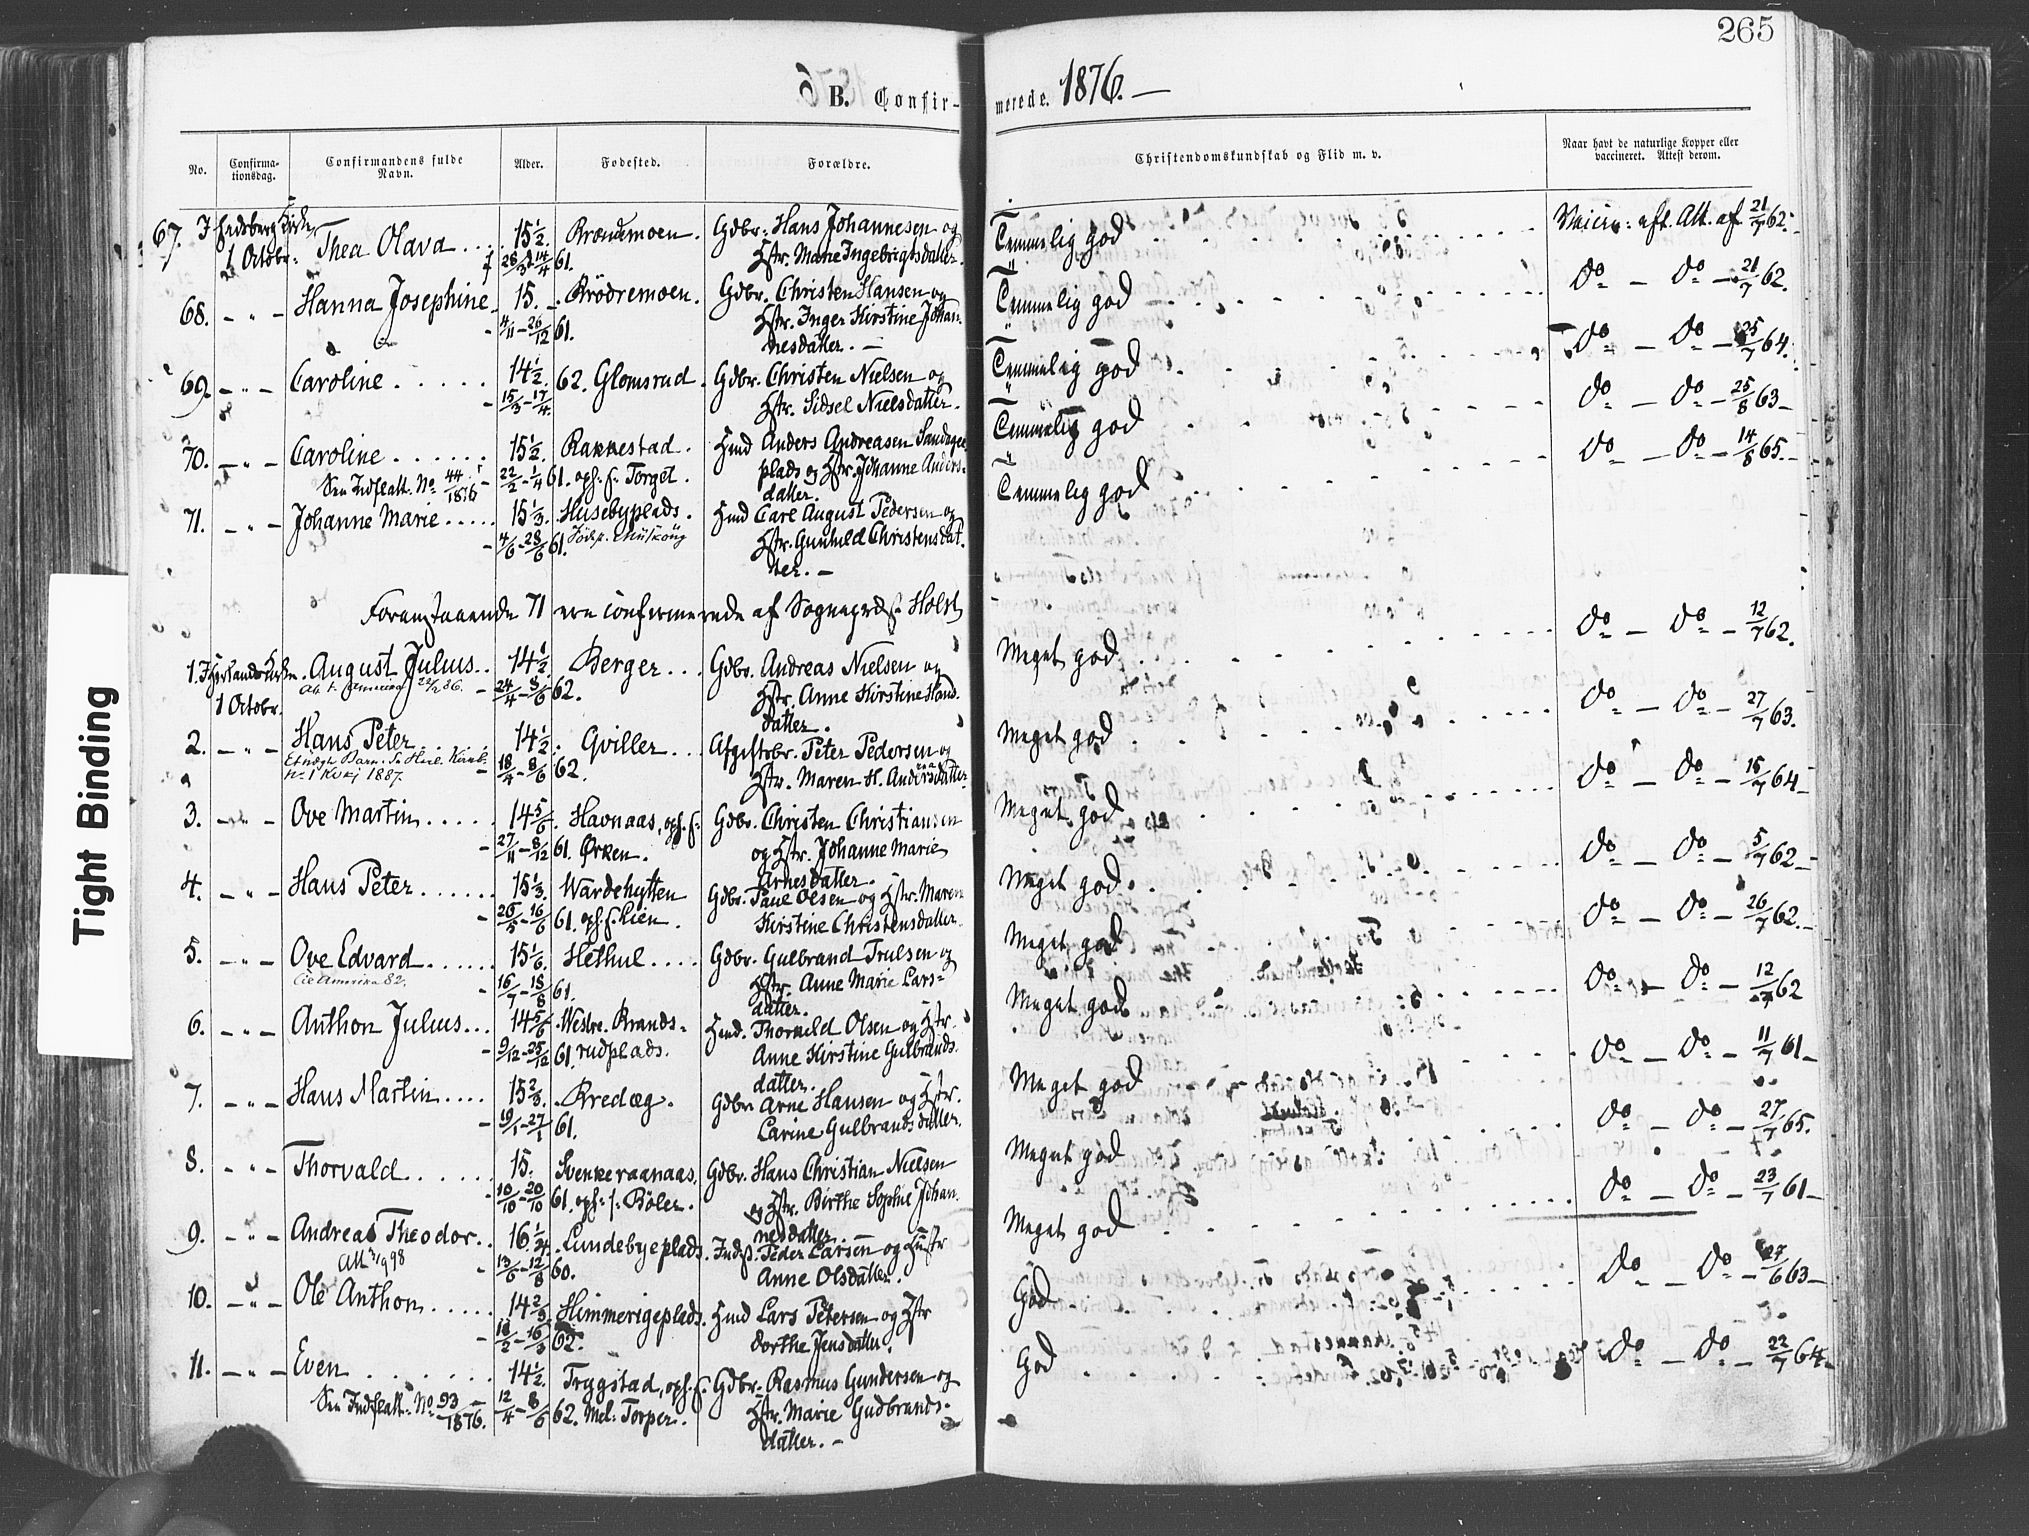 265
B. Confir-
merede. 1876. —
No.
Confirma-
tionsdag.
Confirmandens fulde
Navn.
Alder.
Fødested.
Forældre.
Christendomskundskab og Flid m. v.
Naar havt de naturlige Kopper eller
vaccineret. Attest derom.
67. I Eidsberg Kirke 1 Octobr: Thea Olava . . . 15 1/2. Gdbr: Hans Johannesen og
28/3 - 14/4 61. Hstr. Marie Ingebrigtsdatter.
Temmelig god . . . Vaccin: aft. Att. af 21/7 62.
68. — " — Hanna Josephine 15. Brödremoen. Gdbr. Christen Hansen og
4/11 - 26/12 61. Hstr. Inger Kirstine Johan-
nesdatter. —
Temmelig god . . . do — do — 21/7 62.
69. — " — Caroline . . . 14 1/2. 62. Glomsrud. Gdbr. Christen Nielsen og
15/3 - 17/4. Hstr. Sidsel Nielsdatter.
Temmelig god . . . do — do — 25/7 64.
70. — " — Caroline . . . 15 1/2. Rakkestad. Hmd Anders Andreasen
Sen Indflatt. No 44/1876 22/2 - 1/4 61. oph. f. Torget. plads og Hstr. Johanne Anders-
datter.
Temmelig god . . . do — do — 25/8 63 —
71. — " — Johanne Marie . . . 15 1/3. Husebyplads. Hmd Carl August Pedersen og
4/6 - 28/6 61. Hstr. Gunhild Christensdat-
ter. —
Temmelig god . . . do — do — 14/8 65. —
Foranstaaende 71 ere confirmerede af Sogneprest Holst
1. 1 Octobr. August Julius . . 14 1/2. Berger . . . Gdbr. Andreas Nielsen og
24/4 - 8/6 62. Hstr. Anne Kirstine Hans-
datter.
Meget god . . . do — do — 12/7 62.
2. — " — Hans Peter . . . 14 1/2. Gviller . . . Afgiftsbr. Peter Pedersen og
No. 1 1887. 18/4 - 8/6 62. Hstr. Maren H. Andersdatter
Meget god . . . do — do — 27/7 63.
3. — " — Ove Martin . . . 14 5/6. Havnaas, oph. f. Gdbr. Christen Christiansen
27/11 - 8/12 61. Ørken. og Hstr. Johanne Marie
Arnesdatter.
Meget god . . . do — do — 15/7 64 —
4. — " — Hans Peter . . . 15 1/3. Wardehytten Gdbr. Paul Olsen og Hstr. Maren
26/5 - 16/6 61. oph. f. Lien. Kirstine Christensdatter.
Meget god . . . do — do — 5/7 62 —
5. — " — Ove Edvard . . . 15 1/6. Hethul . . . Gdbr. Gulbrand Trulsen og
Amerika 82. 16/7 - 18/8 61. Hstr. Anne Marie Lars-
datter.
Meget god . . . do — do — 26/7 62. —
6. — " — Anthon Julius . . . 14 5/6. Westre Brands-
9/12 - 25/12 61 rudplads. Hmd. Thorvild Olsen og Hstr.
Anne Kirstine Gulbrands-
datter.
Meget god . . . do — do — 12/7 62
7. — " — Hans Martin . . . 15 2/3. Bredæg. Gdbr Arne Hansen og Hstr.
19/1 - 27/1 61. Carine Gulbrandsdatter.
Meget god . . . do — do — 11/7 61 —
8. — " — Thorvald . . . 15. Svenkeraanaas, Gdbr. Hans Christian Nielsen
10/10 - 20/10 61. oph. f. Böler. og Hstr. Birthe Sophie Johan-
nesdatter.
Meget god . . . do — do — 27/7 65.
9. — " — Andreas Theodor . . 16 1/24. Lundebyeplads. Indst. Peder Larsen og Hustr
13/6 - 12/8 60. Anne Olsdatter.
Meget god . . . do — do — 23/7 61 —
10. — " — Ole Anthon . . . 14 2/3. Himmerigeplads. Hmd Lars Petersen og Hstr
18/2 - 16/3 62. Dorthe Jensdatter.
God . . . do — do — 27/6 63 —
11. — " — Even . . . 14 1/2. Trygstad, oph. f. Gdbr. Rasmus Gundersen og
Sen Indflatt. No 93/1876. 12/4 - 8/6 62. Mel: Torper. Hstr. Marie Gudbrands-
datter. —
God . . . do — do — 22/7 64 —
Tight Binding